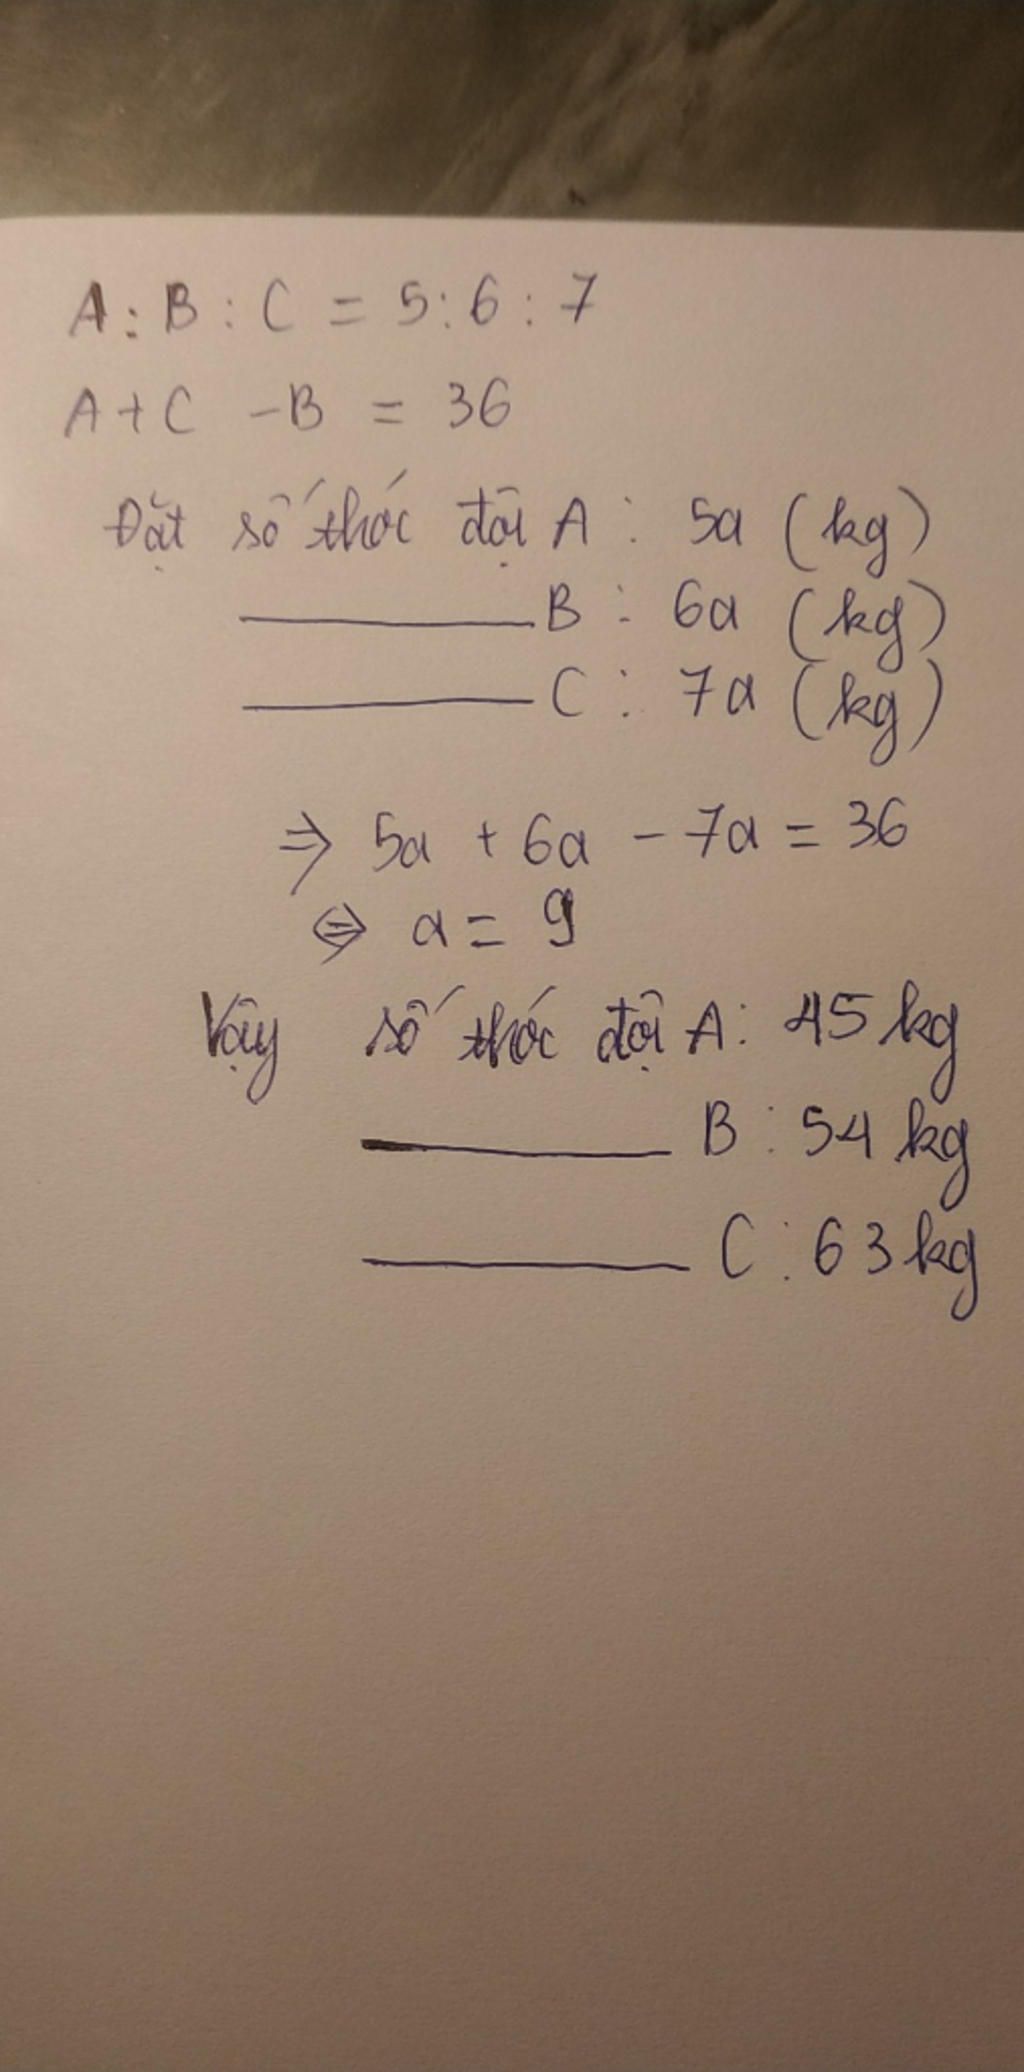 A : B : C = 5 : 6 : 7
A + C - B = 36
Đặt số thóc đội A : 5a (kg)
B : 6a (kg)
C : 7a (kg)
⇒ 5a + 6a - 7a = 36
⇔ a = 9
Vậy số thóc đội A : 45 kg
B : 54 kg
C : 63 kg